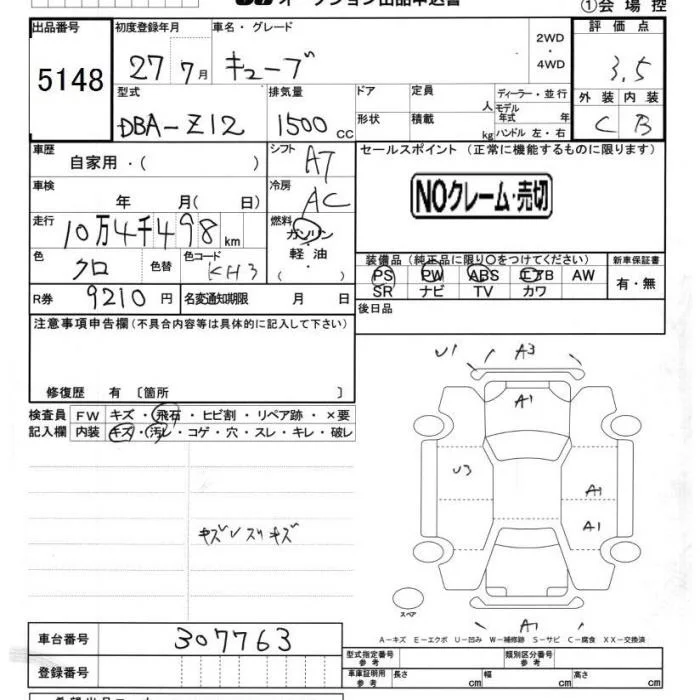 オークション出品申込書
①会場控
出品番号 5148
初度登録年月 27 7月
車名・グレード キューブ
2WD・4WD
評価点 3.5
外装 C 内装 B
型式 DBA-Z12
排気量 1500 CC
ドア 定員 人
形状 積載 kg
ディーラー・並行
モデル年式 年
ハンドル 左・右
車歴 自家用・( )
シフト AT
セールスポイント (正常に機能するものに限ります)
NOクレーム・売切
車検 年 月( 日)
冷房 AC
走行 10万4千498 km
燃料 ガソリン・軽油・( )
色 クロ 色替 色コード KH3
装備品 (純正品に限り○をつけてください)
新車保証書 有・無
PS PW ABS エアB AW
SR ナビ TV カワ
R券 9210 円
名変通知期限 月 日
後日品
注意事項申告欄(不具合内容等は具体的に記入して下さい)
修復歴 有 〔箇所 〕
検査員記入欄
FW キズ・飛石・ヒビ割・リペア跡・×要
内装 キズ・汚レ・コゲ・穴・スレ・キレ・破レ
U1 A3
A1
U3
A1
A1
A1
スペア
A-キズ E-エクボ U-凹み W-補修跡 S-サビ C-腐食 XX-交換済
車台番号 307763
登録番号
型式指定番号 参考
類別区分番号 参考
車庫証明用 参考 長さ cm 幅 cm 高さ cm